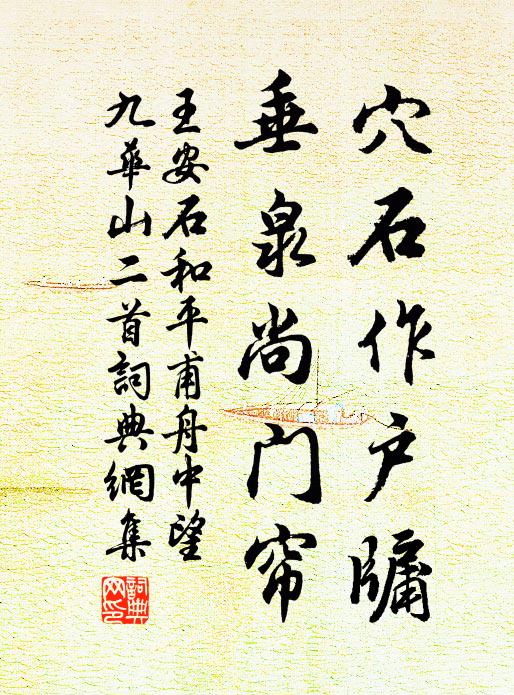 穴石作户牖
垂泉尚门帘
王安石和平甫舟中望
九华山二首詞典網集
詞典網印